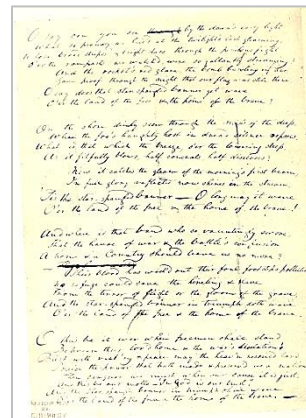 O say can you see by the dawn's early light
What so proudly we hail'd at the twilight's last gleaming,
Whose bright stars through the
O'er the ramparts we watch'd were so gallantly streaming?
And the rocket's red glare, the bomb bursting in air,
Gave proof through the night that our flag was still there
O say does that star-spangled banner yet wave
O'er the land of the free & the home of the brave?
On the shore dimly seen through the mists of the deep,
Where the foe's haughty host in dread silence reposes,
What is that which the breeze, o'er the towering steep,
As it fitfully blows, half conceals, half discloses?
Now it catches the gleam of the morning's first beam,
In full glory reflected now shines in the stream,
'Tis the star-spangled banner — O long may it wave
O'er the land of the free & the home of the brave!
And where is that band who so vauntingly swore,
That the havoc of war & the battle's confusion
A home & a Country should leave us no more?
Their blood has wash'd out their foul footstep's pollution
No refuge could save the hireling & slave
From the terror of flight or the gloom of the grave,
And the star-spangled banner in triumph doth wave
O'er the land of the free & the home of the brave.
O thus be it ever when freemen shall stand
Between their lov'd home & the war's desolation!
Blest with vict'ry & peace may the heav'n rescued land
Praise the power that hath made & preserv'd us a nation!
Then conquer we must, when our cause it is just,
And this be our motto — In God is our trust,
And the star-spangled banner in triumph shall wave
O'er the land of the free & the home of the brave.